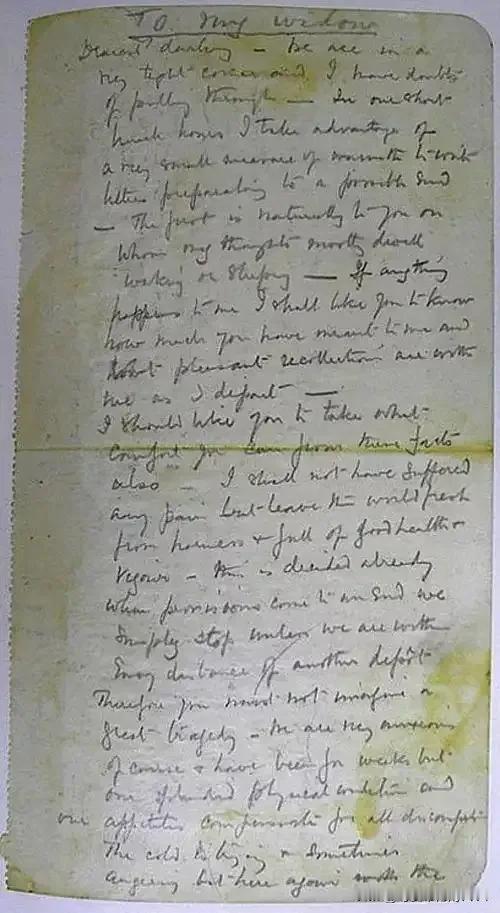 To my widow
Dearest darling — we are in a
very tight corner and I have doubts
of pulling through — In our short
lunch hours I take advantage of
a very small measure of warmth to write
letters preparatory to a possible end
— The first is naturally to you on
whom my thoughts mostly dwell
waking or sleeping — If anything
happens to me I shall like you to know
how much you have meant to me and
that pleasant recollections are with
me as I depart —
I should like you to take what
comfort you can from these facts
also — I shall not have suffered
any pain but leave the world fresh
from harness & full of good health &
vigour — this is decided already
when provisions come to an end we
simply stop unless we are within
easy distance of another depot
Therefore you must not imagine a
great tragedy — we are very anxious
of course & have been for weeks but
our splendid physical condition and
our appetites compensate for all discomfort
The cold is biting & sometimes
angering but here again with the